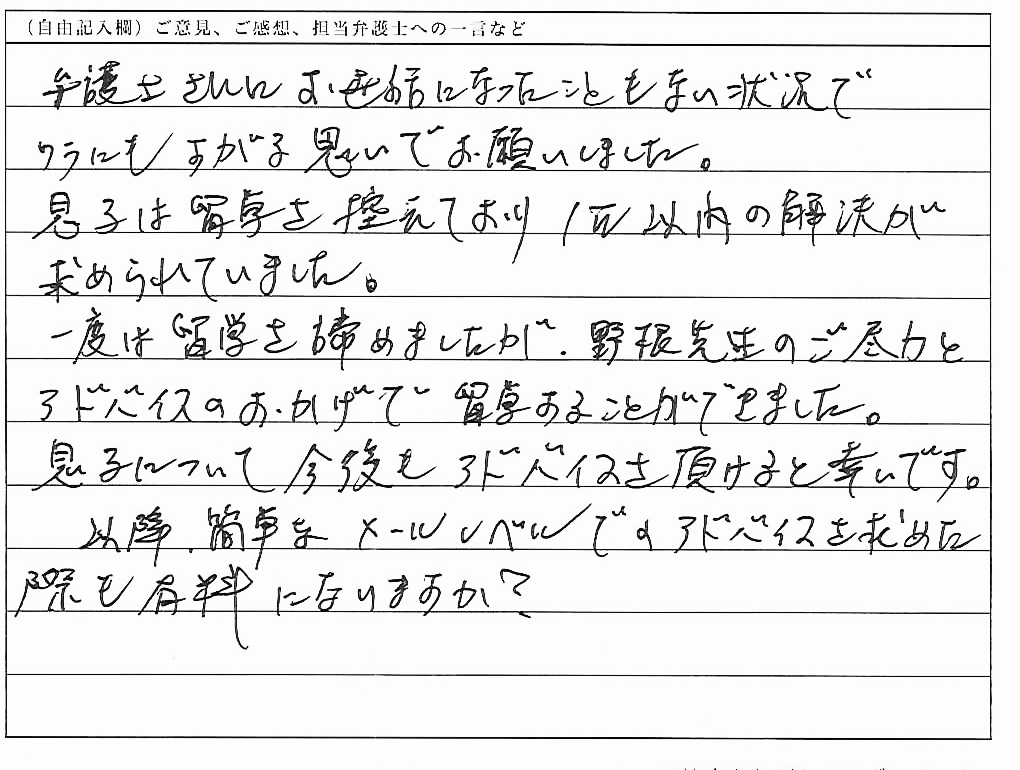 (自由記入欄)ご意見、ご感想、担当弁護士への一言など
弁護士さんにお世話になったこともない状況で
ワラにもすがる思いでお願いしました。
息子は留学を控えており1ヶ月以内の解決が
求められていました。
一度は留学を諦めましたが、野根先生のご尽力と
アドバイスのおかげで留学することができました。
息子について今後もアドバイスを頂けると幸いです。
以降、簡単なメールレベルでのアドバイスを求めた
際も有料になりますか?